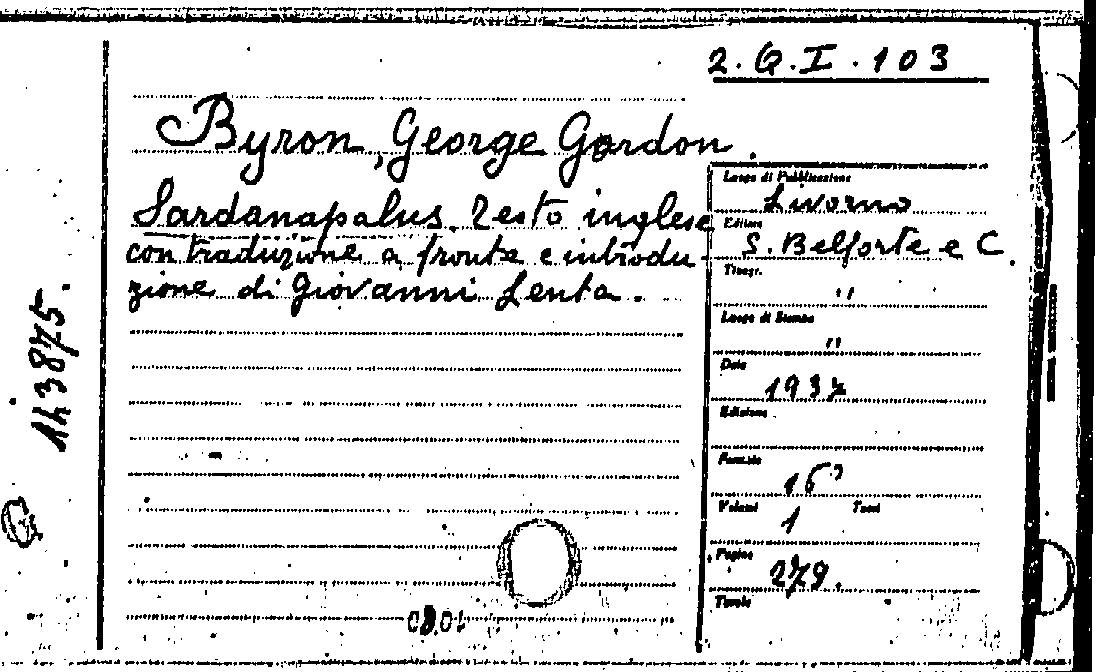 2.Q.I.103
Byron, George Gordon.
Sardanapalus. Testo inglese
con traduzione a fronte e introdu-
zione di Giovanni Lenta.
Luogo di Pubblicazione
Livorno
Editore
S. Belforte e C.
Tipogr.
"
Luogo di Stampa
"
Data
1937
Edizione
Formato
16°
Volumi Tomi
1
Pagine
279.
Tavole
143875.